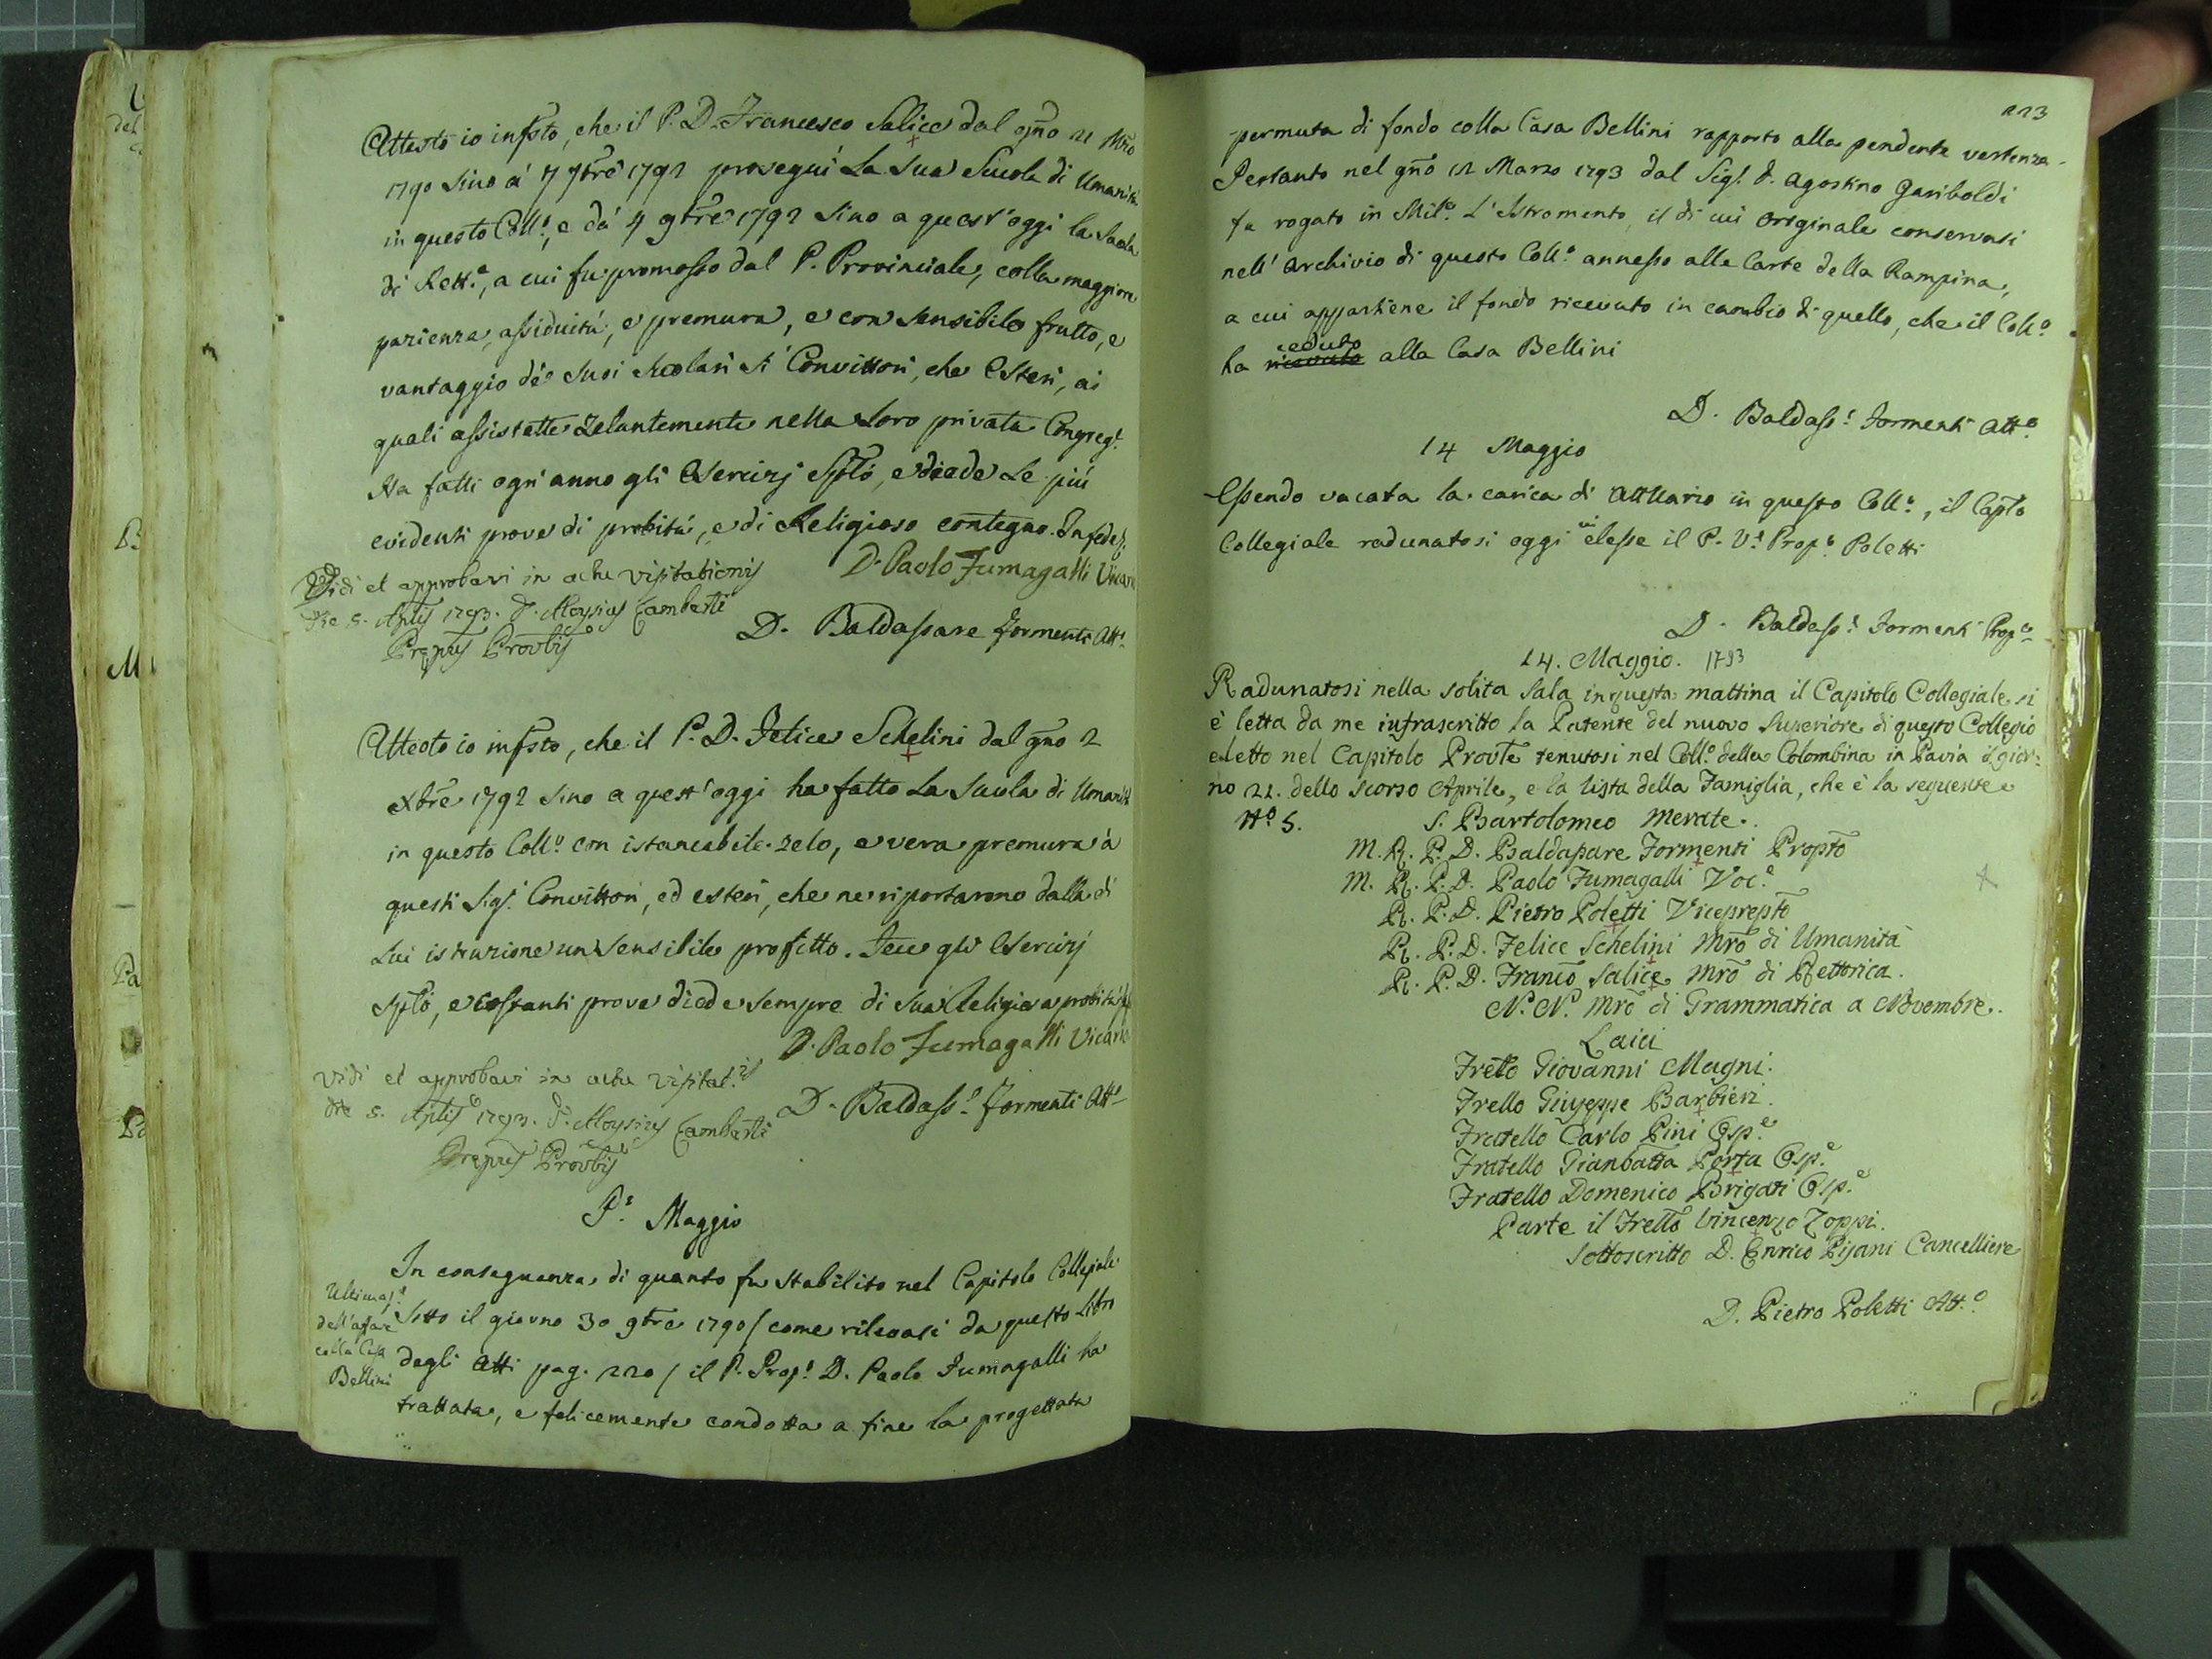 Attesto io infrto, che il P. D. Francesco Salice dal gno 21 Mrzo
1790 sino a' 4 9bre 1792 proseguì la sua Scuola di Umanità
in questo Coll.o, e da' 4 9bre 1792 sino a quest'oggi la Scuola
di Rett.a, a cui fu promosso dal P. Provinciale, colla maggiore
pazienza, assiduità, e premura, e con sensibile frutto, e
vantaggio de' suoi Scolari sì Convittori, che Esteri, ai
quali assistette zelantemente nella loro privata Congreg.e
Ha fatti ogni anno gli Esercizj Splò, e diede le più
evidenti prove di probità, e di Religioso contegno. In fede
D. Paolo Fumagalli Vicario
Vidi et approbavi in actu visitationis
die 5. Aplis 1793. D. Aloysius Lambertè
Prepus Provlis
D. Baldassare Formenti Att.o
Attesto io infrto, che il P. D. Felice Schelini dal gno 2
Xbre 1792 sino a quest'oggi ha fatto la Scuola di Umanità
in questo Coll.o con istancabile zelo, e vera premura a
questi Sig.i Convittori, ed esteri, che ne riportarono dalla di
lui istruzione un sensibile profitto. Fece gli Esercizj
Splò, e costanti prove diede sempre di sua Religiosa probità
D. Paolo Fumagalli Vicario
Vidi et approbavi in actu visitat.is
die 5. Aplis 1793. D. Aloysius Lambertè
Prepus Provlis
D. Baldass.e Formenti Att.o
P.o Maggio
Ultimaz.e
dell'affare
colla Casa
Bellini
In conseguenza di quanto fu stabilito nel Capitolo Collegiale
sotto il giorno 30 9bre 1790 / come rilevasi da questo Libro
degli Atti pag. 220 / il P. Prop.o D. Paolo Fumagalli ha
trattata, e felicemente condotta a fine la progettata
223
permuta di fondo colla Casa Bellini rapporto alla pendente vertenza.
Pertanto nel gno 12 Marzo 1793 dal Sig.r D. Agostino Gariboldi
fu rogato in Mil.o L'Istromento, il di cui originale conservasi
nell'Archivio di questo Coll.o annesso alle Carte della Rampina,
a cui appartiene il fondo ricevuto in cambio di quello, che il Coll.o
ha ricevuto ceduto alla Casa Bellini
D. Baldass.e Formenti Att.o
14 Maggio
Essendo vacata la carica di Attuario in questo Coll.o, il Caplo
Collegiale radunatosi oggi vi elesse il P. V.e Prop.o Poletti
D. Baldass.e Formenti Prop.o
14. Maggio. 1793
Radunatosi nella solita Sala in questa mattina il Capitolo Collegiale si
è letta da me infrascritto la Patente del nuovo Superiore di questo Collegio
eletto nel Capitolo Provle tenutosi nel Coll.o della Colombina in Pavia il gior:
no 22. dello scorso Aprile, e la lista della Famiglia, che è la seguente
N.o 5. S. Bartolomeo Merate.
M. R. P. D. Baldassare Formenti Propto
M. R. P. D. Paolo Fumagalli Voc.e
R. P. D. Pietro Poletti Viceprepto
R. P. D. Felice Schelini Mro di Umanità
R. P. D. Franco Salice Mro di Rettorica.
N. N. Mro di Grammatica a Novembre.
Laici
Frello Giovanni Magni.
Frello Giuseppe Barbieri.
Fratello Carlo Pini Osp.e
Fratello Gianbatta Porta Osp.e
Fratello Domenico Brigati Osp.e
Parte il Frello Vincenzo Zoppi.
Sottoscritto D. Enrico Pisani Cancelliere
D. Pietro Poletti Att.o